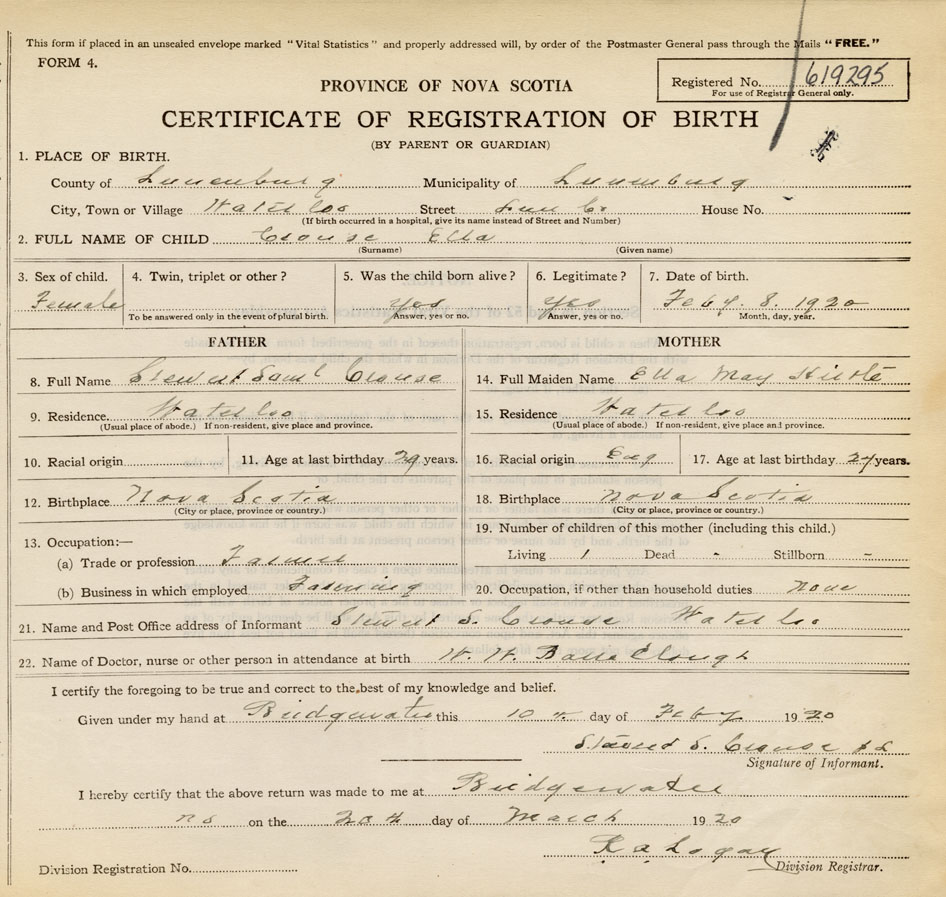 This form if placed in an unsealed envelope marked "Vital Statistics" and properly addressed will, by order of the Postmaster General pass through the Mails "FREE."
FORM 4.
Registered No. 619295
For use of Registrar General only.
PROVINCE OF NOVA SCOTIA
CERTIFICATE OF REGISTRATION OF BIRTH
(BY PARENT OR GUARDIAN)
1. PLACE OF BIRTH.
County of Lunenburg Municipality of Lunenburg
City, Town or Village Waterloo Street Lun Co House No. -
(If birth occurred in a hospital, give its name instead of Street and Number)
2. FULL NAME OF CHILD Crouse Ella
(Surname) (Given name)
3. Sex of child. 4. Twin, triplet or other? 5. Was the child born alive? 6. Legitimate? 7. Date of birth.
Female yes yes Feby. 8. 1920
To be answered only in the event of plural birth. Answer, yes or no. Answer, yes or no. Month, day, year.
FATHER MOTHER
8. Full Name Stewart Saml Crouse 14. Full Maiden Name Ella May
9. Residence Waterloo 15. Residence Waterloo
(Usual place of abode.) If non-resident, give place and province. (Usual place of abode.) If non-resident, give place and province.
10. Racial origin 11. Age at last birthday 29 years. 16. Racial origin Eng 17. Age at last birthday years.
12. Birthplace Nova Scotia 18. Birthplace Nova Scotia
(City or place, province or country.) (City or place, province or country.)
13. Occupation:— 19. Number of children of this mother (including this child.)
(a) Trade or profession Farmer Living 1 Dead - Stillborn -
(b) Business in which employed Farming 20. Occupation, if other than household duties none
21. Name and Post Office address of Informant Stewart S. Crouse Waterloo
22. Name of Doctor, nurse or other person in attendance at birth W. H.
I certify the foregoing to be true and correct to the best of my knowledge and belief.
Given under my hand at Bridgewater this 10th day of Feby 1920
S. Crouse
Signature of Informant.
I hereby certify that the above return was made to me at Bridgewater
NS on the 20th day of March 1920
R a Logan
Division Registration No. Division Registrar.